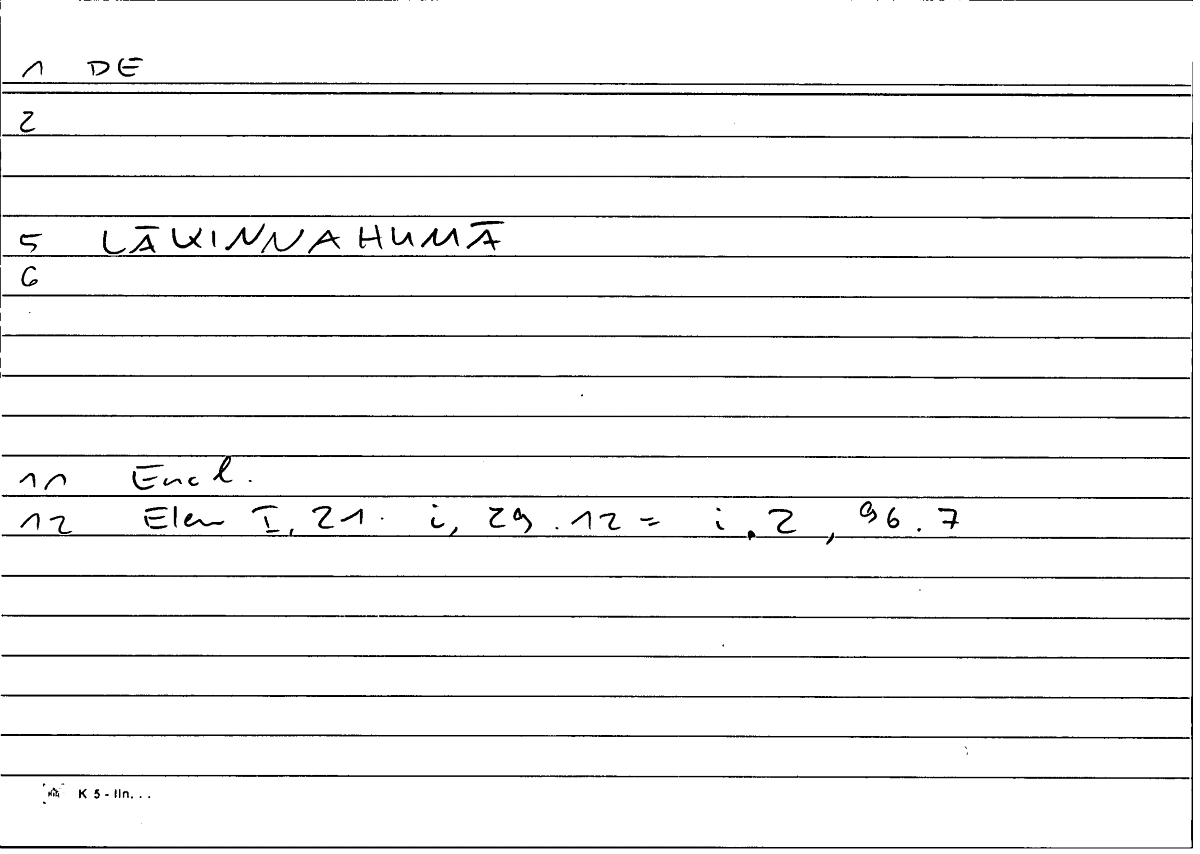 1 DE
2
5 LĀKINNAHUMĀ
6
11 Encl.
12 Elem I, 21. i, 29.12 = i.2, 96.7
K 5 - lin...